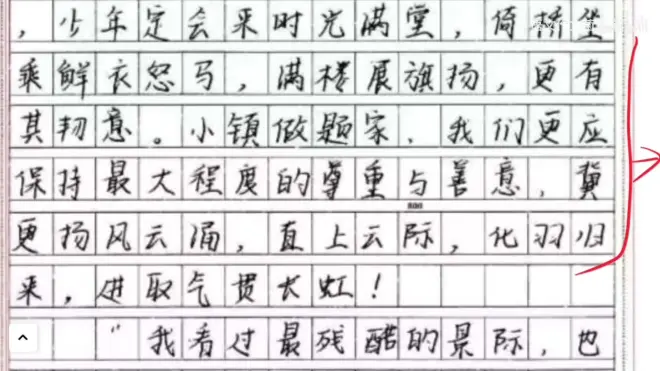 ，少年定会来时光满堂，倚桥坐
乘鲜衣怒马，满楼展旗扬，更有
其韧意。小镇做题家，我们更应
保持最大程度的尊重与善意，冀
更扬风云涌，直上云际，化羽归
来，进取气贯长虹！
“我看过最残酷的景际，也